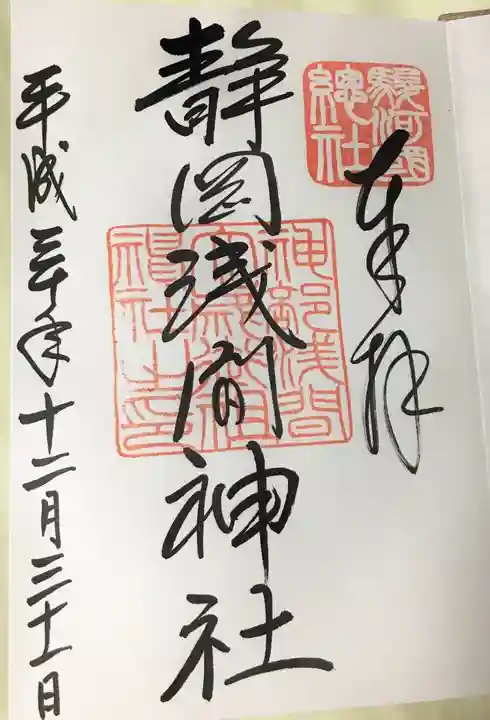 駿河國
總社
奉拝
静岡浅間神社
神部浅間
平成三十年十二月三十一日